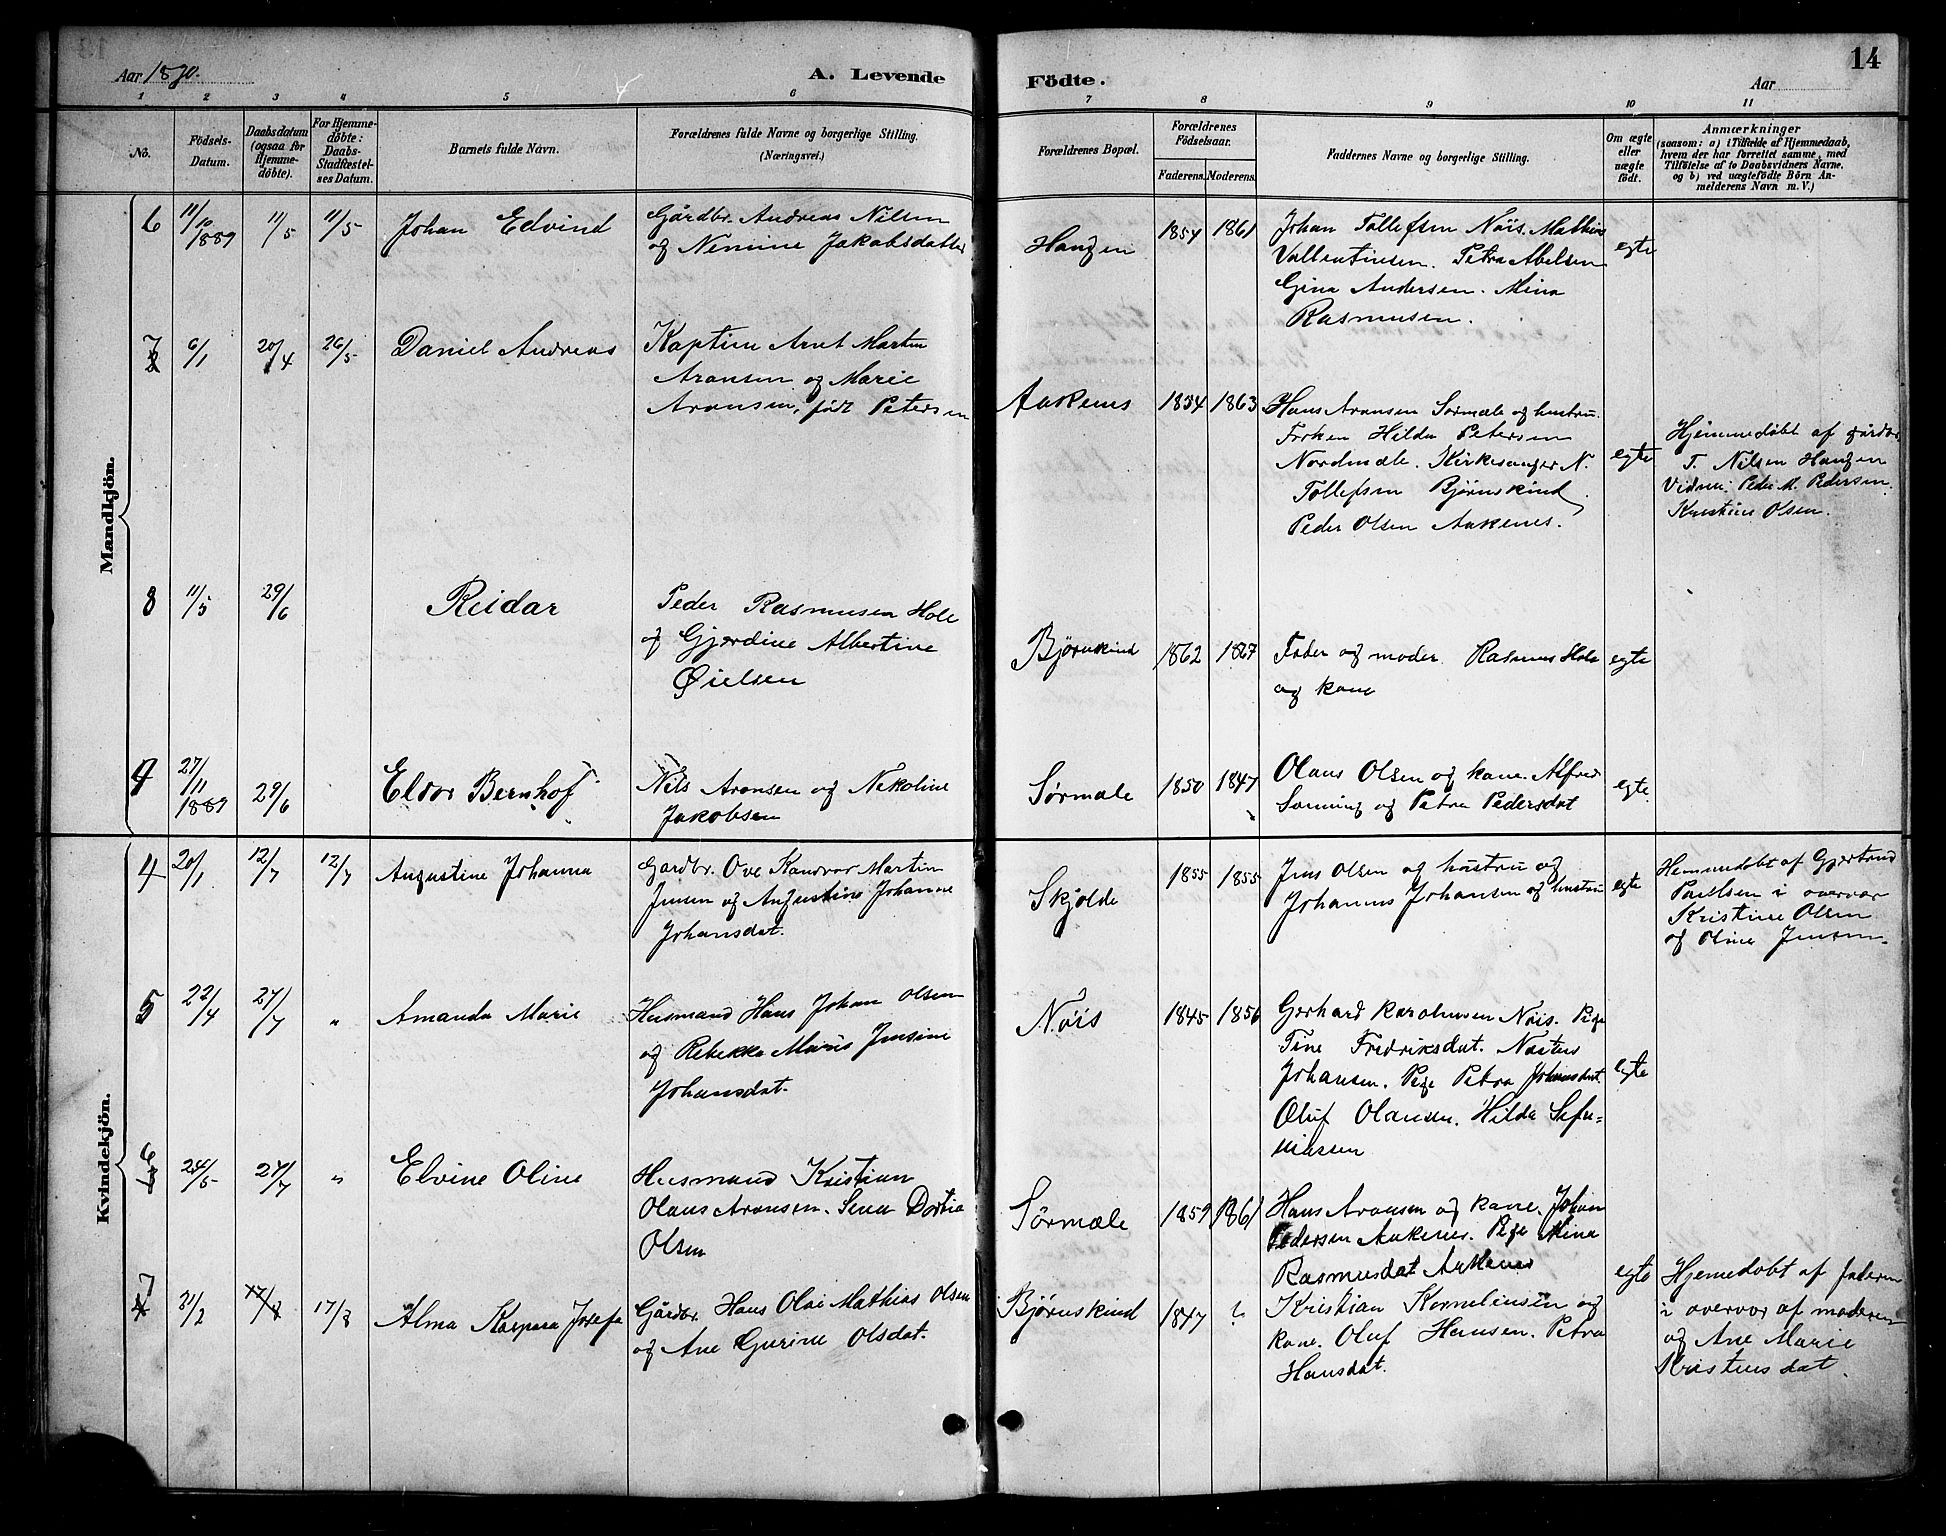 Aar 1890.
A. Levende
Födte.
Aar
14
1
2
3
4
5
6
7
8
9
10
11
No.
Födsels-Datum.
Daabsdatum (ogsaa for Hjemme-döbte).
For Hjemme-döbte: Daabs-Stadfæstel-ses Datum.
Barnets fulde Navn.
Forældrenes fulde Navne og borgerlige Stilling.
(Næringsvei.)
Forældrenes Bopæl.
Forældrenes Födselsaar.
Faderens.
Moderens.
Faddernes Navne og borgerlige Stilling.
Om ægte eller uægte födt.
Anmærkninger
(saasom: a) i Tilfælde af Hjemmedaab,
hvem der har forrettet samme, med
Tilföielse af to Daabsvidners Navne,
og b) ved uægtefödte Börn An-
melderens Navn m. V.)
Mandkjön.
6
11/10 1889
11/5
11/5
Johan Edvind
Gårdbr. Andreas Nilsen
og Nemine Jakobsdatter
Haugen
1854
1861
Johan Tollefsen Nöis. Mathias
Valbentinsen. Petra Abelsen
Gina Andersen. Mina
Rasmusen.
egte
7
6/1
20/4
26/5
Daniel Andreas
Kaptein Arnt Martin
Aronsen og Marie
Aronsen, född Petersen
Aakenes
1854
1863
Hans Aronsen Sørmæle og hustru.
Frøken Hilda Petersen
Nordmæle. Kirkesanger N.
Tollefsen Bjørnskind
Peder Olsen Aakenes.
egte
Hjemmedøbt af gårdbr.
T. Nilsen Haugen
Vidner: Peder M. Pedersen
Kristine Olsen.
8
11/5
29/6
Reidar
Peder Rasmusen Hole
og Gjerdine Albertine
Øielsen
Bjørnskind
1862
1867
Fader og moder. Rasmus Hole
og kone
egte
9
27/11 1889
29/6
Eldor Bernhof
Nils Aronsen og Nekoline
Jakobsen
Sørmæle
1850
1847
Olaus Olsen og kone. Alfred
Sanning og Petra Pedersdat
egte.
Kvindekjön.
4
20/1
12/7
12/7
Augustine Johanna
Gardbr. Ove Kandvor Martin
Jensen og Augustine Johanne
Johansdat.
Skjolde
1855
1855
Jens Olsen og hustru og
Johannes Johansen og hustru
egte
Hemmedøbt af Gjertrud
Paulsen i overvær
Kristine Olsen
og Oline Jensen.
5
22/4
27/7
"
Amanda Marie
Husmand Hans Johan Olsen
og Rebekka Maris Jensine
Johansdat.
Nöis
1845
1856
Gerhard Karolusen Nöis. Pige
Tine Fredriksdat. Nastus
Johansen. Pige Petra Johansdat.
Oluf Olausen. Hilda Sefa-
niassen
egte
6
24/5
27/7
"
Elvine Oline
Husmand Kristian
Olaus Aronsen. Sena Dortia
Olsen
Sørmæle
1859
1861
Hans Aronsen og kone. Johan
Pedersen Aakenes. Pige Mina
Rasmusdat Aakenes
egte
7
21/2
17/8
17/8
Alma Kaspara Josefa
Gårdbr. Hans Olai Mathias Olsen
og Ane Gurine Olsdat.
Bjørnskind
1847
?
Kristian Kornelinsen og
kone. Oluf Hansen. Petra
Hansdat.
Hjemedøbt af faderen
i overvær af moderen
og Ane Marie
Kristensdat.